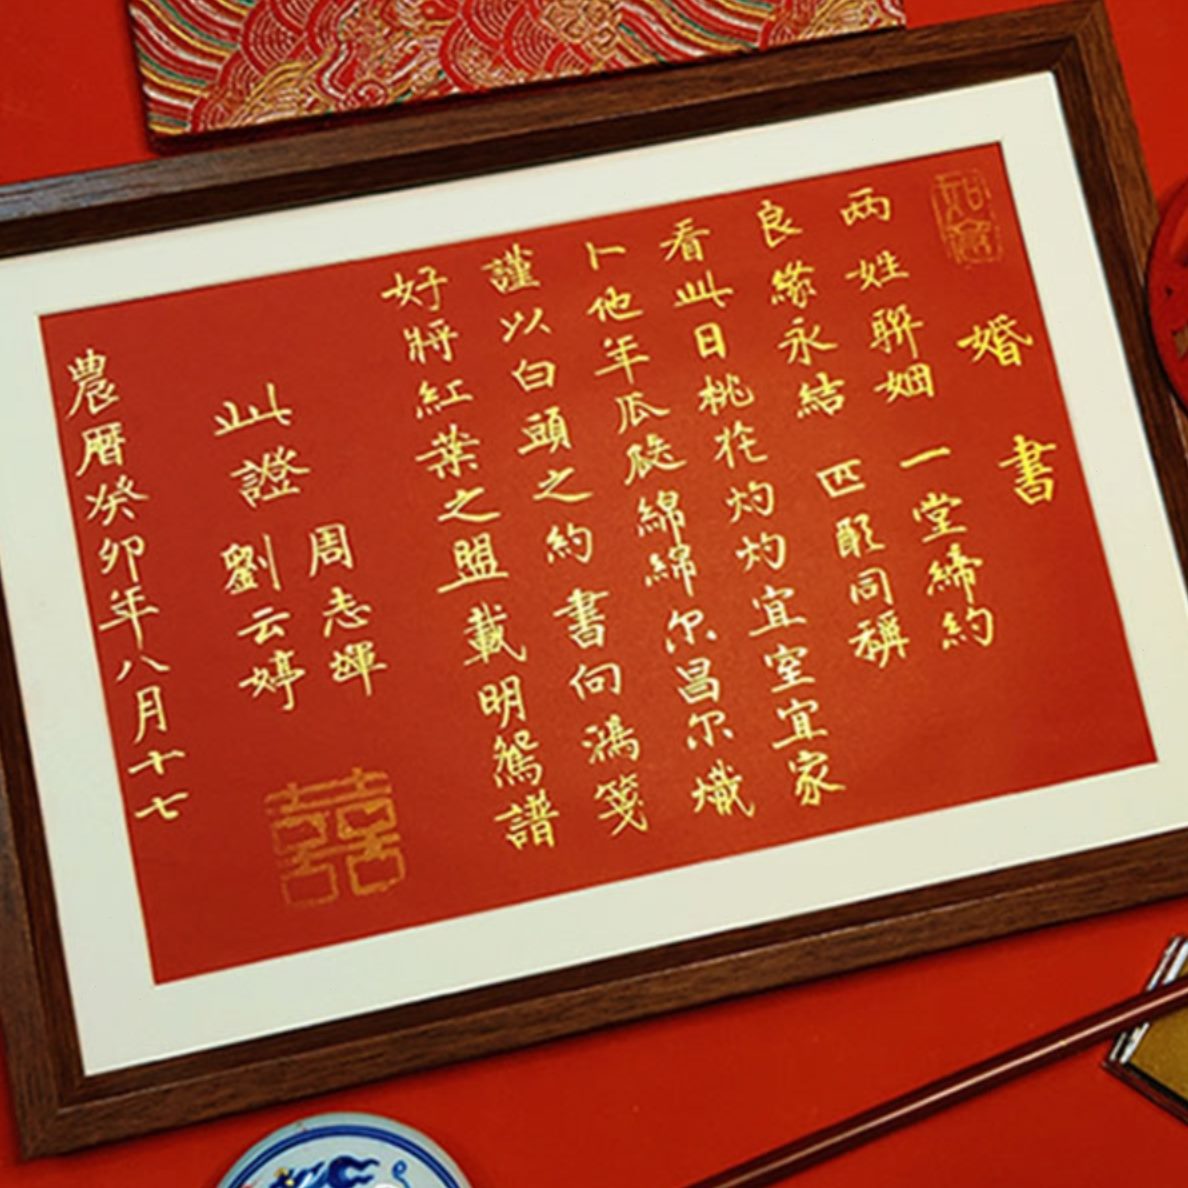 如意
婚書
兩姓聯姻 一堂締約
良緣永結 匹配同稱
看此日桃花灼灼宜室宜家
卜他年瓜瓞綿綿尔昌尔熾
謹以白頭之約 書向鴻箋
好將紅葉之盟載明鴛譜
此證
周志輝
劉云婷
農曆癸卯年八月十七
囍